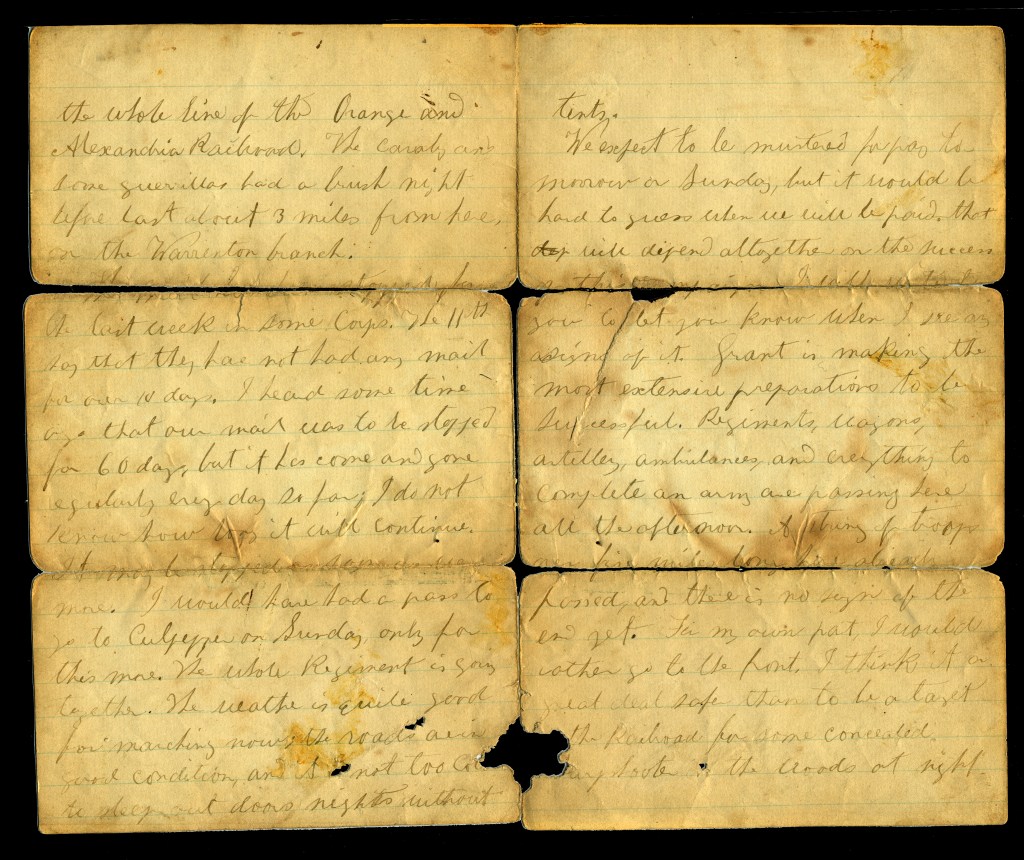 the whole line of the Orange and
Alexandria Railroad. The cavalry and
some guerrillas had a brush night
before last about 3 miles from here,
on the Warrenton branch.
The mail has been stopped for
the last week in some Corps. The 11th
say that they have not had any mail
for over 10 days. I heard some time
ago that our mail was to be stopped
for 60 days, but it has come and gone
regularly every day so far; I do not
know how long it will continue.
It may be stopped as soon as we
move. I would have had a pass to
go to Culpepper on Sunday, only for
this move. The whole Regiment is going
together. The weather is quite good
for marching now; the roads are in
good condition, and it is not too cold
to sleep out doors nights without
tents.
We expect to be mustered for pay to-
morrow or Sunday, but it would be
hard to guess when we will be paid. that
will depend altogether on the success
of this campaign. I will write to
you to let you know when I see any
signs of it. Grant is making the
most extensive preparations to be
successful. Regiments, wagons,
artillery, ambulances, and everything to
complete an army are passing here
all the afternoon. A string of troops
five miles long have already
passed, and there is no sign of the
end yet. For my own part, I would
rather go to the front. I think it a
great deal safer than to be a target
the Railroad for some concealed
in the woods at night.